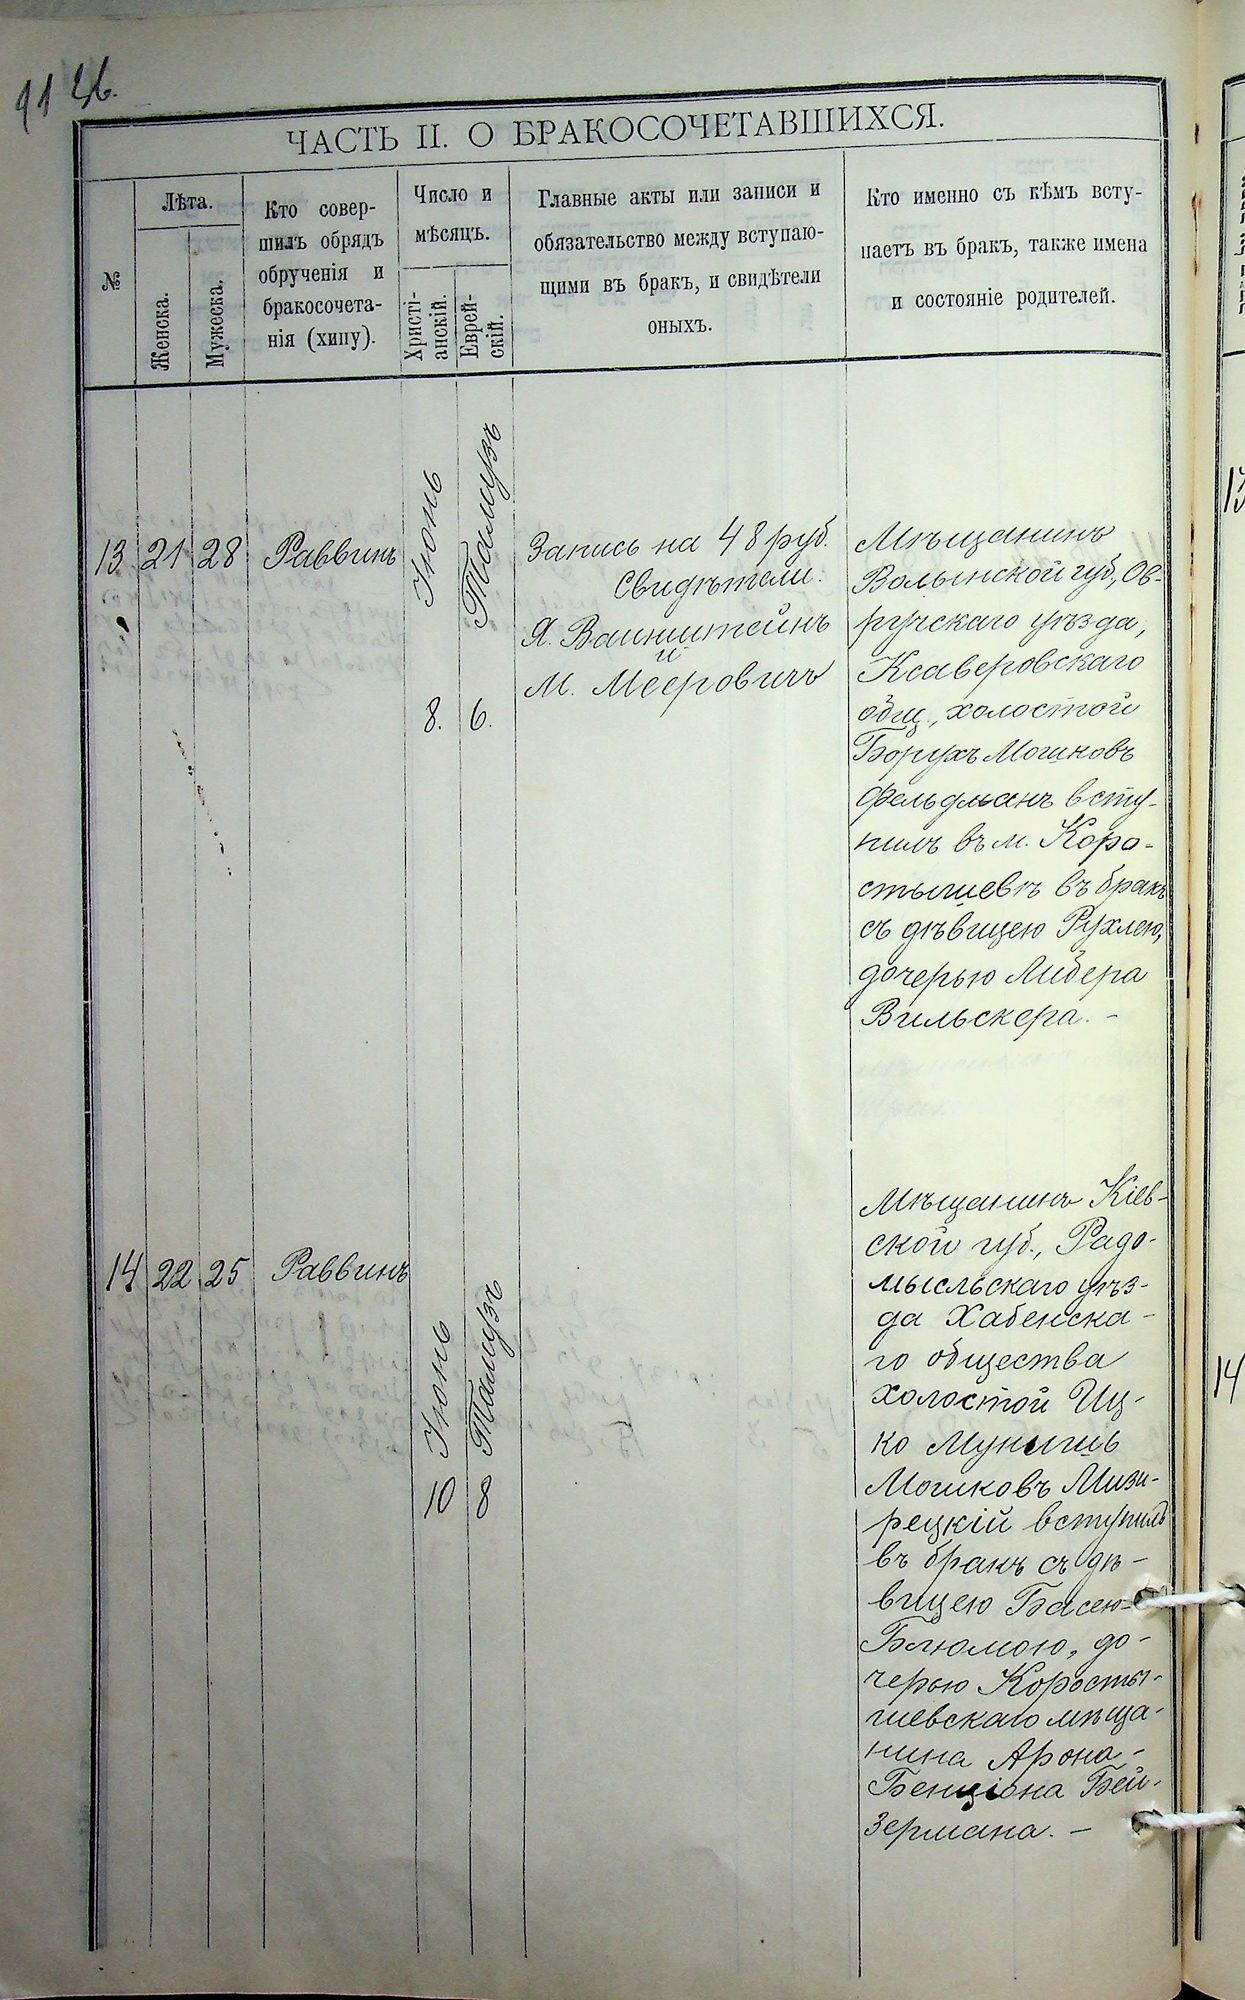 91 46.
ЧАСТЬ II. О БРАКОСОЧЕТАВШИХСЯ.
№
Лѣта.
Женска.
Мужеска.
Кто совер-
шилъ обрядъ
обрученія и
бракосочета-
нія (хипу).
Число и
мѣсяцъ.
Христі-
анскій.
Еврей-
скій.
Главные акты или записи и
обязательство между вступаю-
щими въ бракъ, и свидѣтели
оныхъ.
Кто именно съ кѣмъ всту-
паетъ въ бракъ, также имена
и состояніе родителей.
13 21 28 Раввинъ
Іюнь
8.
Тамузъ
6.
Запись на 48 руб.
Свидѣтели:
Я. Ваинштейнъ
и
М. Мееровичъ
Мѣщанинъ
Волынской губ., Ов-
ручскаго уѣзда,
Ксаверовскаго
общ., холостой
Борухъ Мошковъ
Фельдманъ всту-
пилъ въ м. Коро-
стышевѣ въ бракъ
съ дѣвицею Рухлею,
дочерью Либера
Вильскера. -
14 22 25 Раввинъ
10 Іюнь
8 Тамузъ
Мѣщанинъ Кіев-
ской губ., Радо-
мысльскаго уѣз-
да Хабенска-
го общества
холостой Иц-
ко Мунишъ
Мошковъ Мизи-
рецкій вступилъ
въ бракъ съ дѣ-
вицею Басею-
Блюмою, до-
черью Коросты-
шевскаго мѣща-
нина Арона-
Бенціона Бей-
зермана. -
14